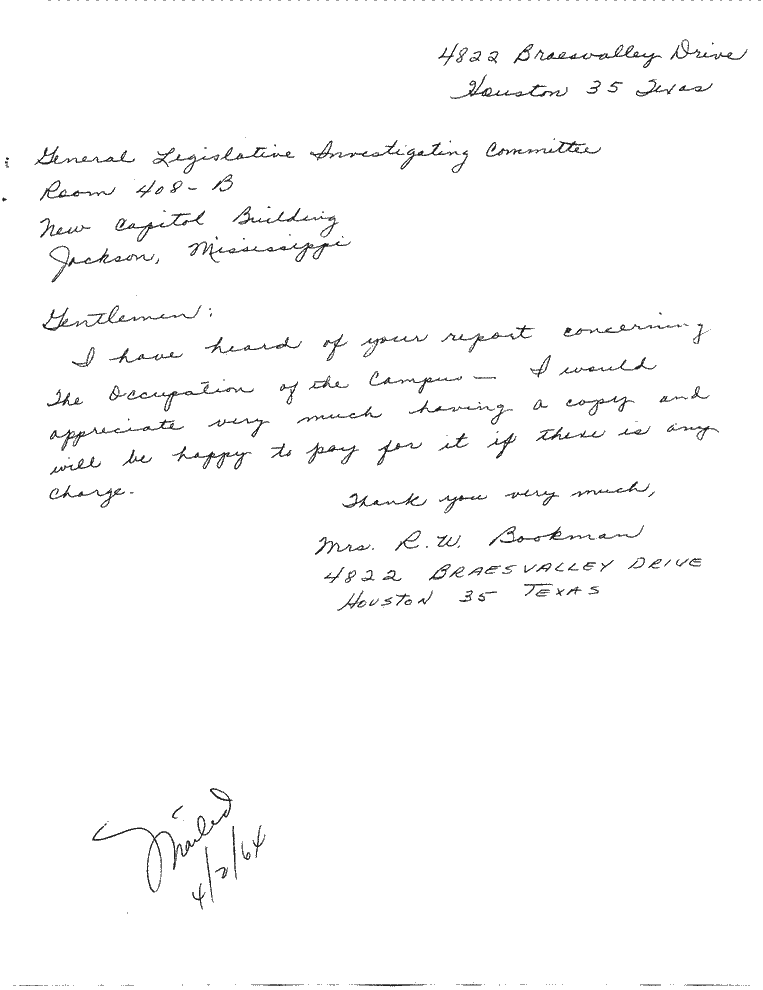 4822 Braesvalley Drive
Houston 35 Texas
General Legislative Investigating Committee
Room 408-B
New Capitol Building
Jackson, Mississippi
Gentlemen:
I have heard of your report concerning
The Occupation of the Campus — I would
appreciate very much having a copy and
will be happy to pay for it if there is any
charge.
Thank you very much,
Mrs. R.W. Bookman
4822 BRAESVALLEY DRIVE
HOUSTON 35 TEXAS
Mailed
4/2/64